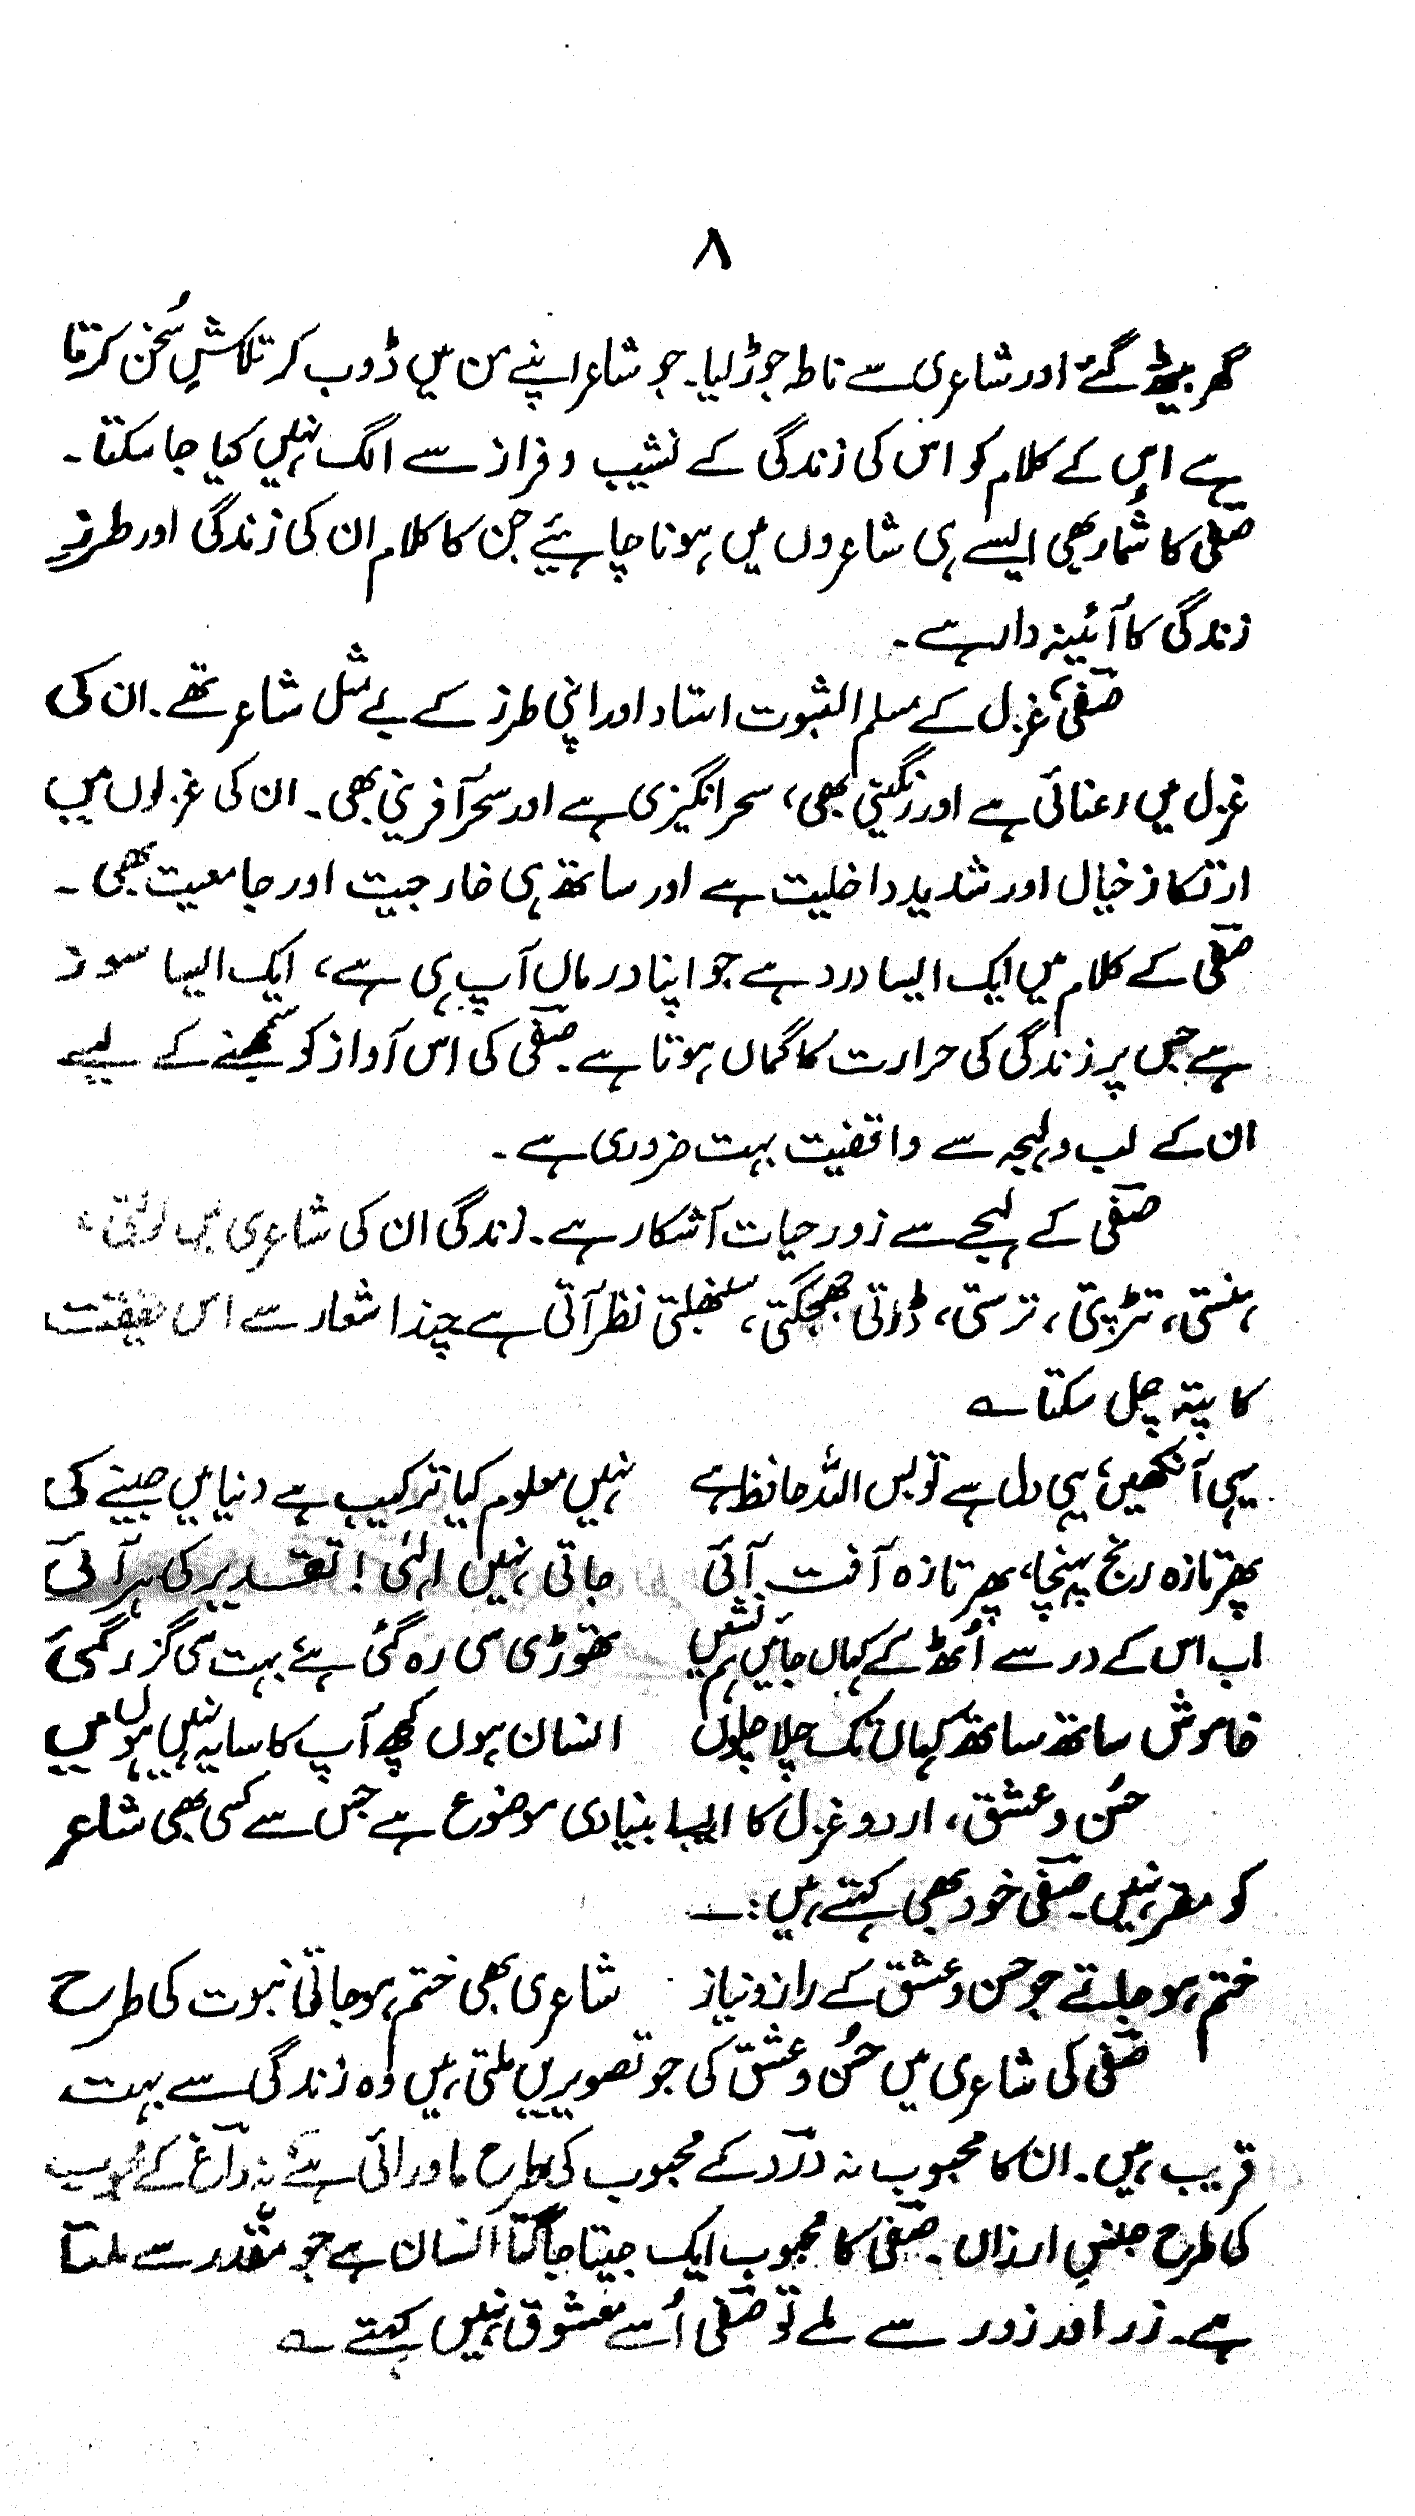 ۸
گھر بیٹھ گئے اور شاعری سے ناطہ جوڑ لیا۔ جو شاعر اپنے من میں ڈوب کر تلاشِ سُخن کرتا
ہے اس کے کلام کو اس کی زندگی کے نشیب و فراز سے الگ نہیں کیا جا سکتا۔
صفیؔ کا شُمار بھی ایسے ہی شاعروں میں ہونا چاہئیے جن کا کلام ان کی زندگی اور طرزِ
زندگی کا آئینہ دار ہے۔
صفیؔ، غزل کے مسلم الثبوت استاد اور اپنی طرز کے بے مثل شاعر تھے۔ ان کی
غزل میں رعنائی ہے اور رنگینی بھی، سحر انگیزی ہے اور سحر آفرینی بھی۔ ان کی غزلوں میں
ارتکازِ خیال اور شدید داخلیت ہے اور ساتھ ہی خارجیت اور جامعیت بھی۔
صفیؔ کے کلام میں ایک ایسا درد ہے جو اپنا درماں آپ ہی ہے، ایک ایسا سوز
ہے جس پر زندگی کی حرارت کا گماں ہوتا ہے۔ صفیؔ کی اس آواز کو سمجھنے کے لیے
ان کے لب و لہجہ سے واقفیت بہت ضروری ہے۔
صفیؔ کے لہجے سے زورِ حیات آشکار ہے۔ زندگی ان کی شاعری میں
ہنستی، تڑپتی، ترستی، ڈرتی جھجکتی، سنبھلتی نظر آتی ہے چند اشعار سے اس حقیقت
کا پتہ چل سکتا ہے
یہی آنکھیں، یہی دل ہے تو بس اللہ حافظ ہے نہیں معلوم کیا ترکیب ہے دنیا میں جینے کی
پھر تازہ رنج پہنچا، پھر تازہ آفت آئی جاتی نہیں الٰہی! تقدیر کی ہر آئی
اب اس کے در سے اُٹھ کے کہاں جائیں ہم نشیں تھوڑی سی رہ گئی ہے، بہت سی گزر گئی
خاموش ساتھ ساتھ کہاں تک چلا چلوں انسان ہوں کچھ آپ کا سایہ نہیں ہوں میں
حُسن و عشق، اردو غزل کا ایسا بنیادی موضوع ہے جس سے کسی بھی شاعر
کو مفر نہیں۔ صفیؔ خود بھی کہتے ہیں:۔
ختم ہو جاتے جو حسن و عشق کے راز و نیاز شاعری بھی ختم ہو جاتی نبوت کی طرح
صفیؔ کی شاعری میں حُسن و عشق کی جو تصویریں ملتی ہیں وہ زندگی سے بہت
قریب ہیں۔ ان کا محبوب نہ دردؔ کے محبوب کی طرح ماورائی ہے، نہ داغؔ کے محبوب
کی طرح جنسِ ارزاں۔ صفیؔ کا محبوب ایک جیتا جاگتا انسان ہے جو مقدر سے ملتا
ہے۔ زر اور زور سے ملے تو صفیؔ اُسے معشوق نہیں کہتے ہے